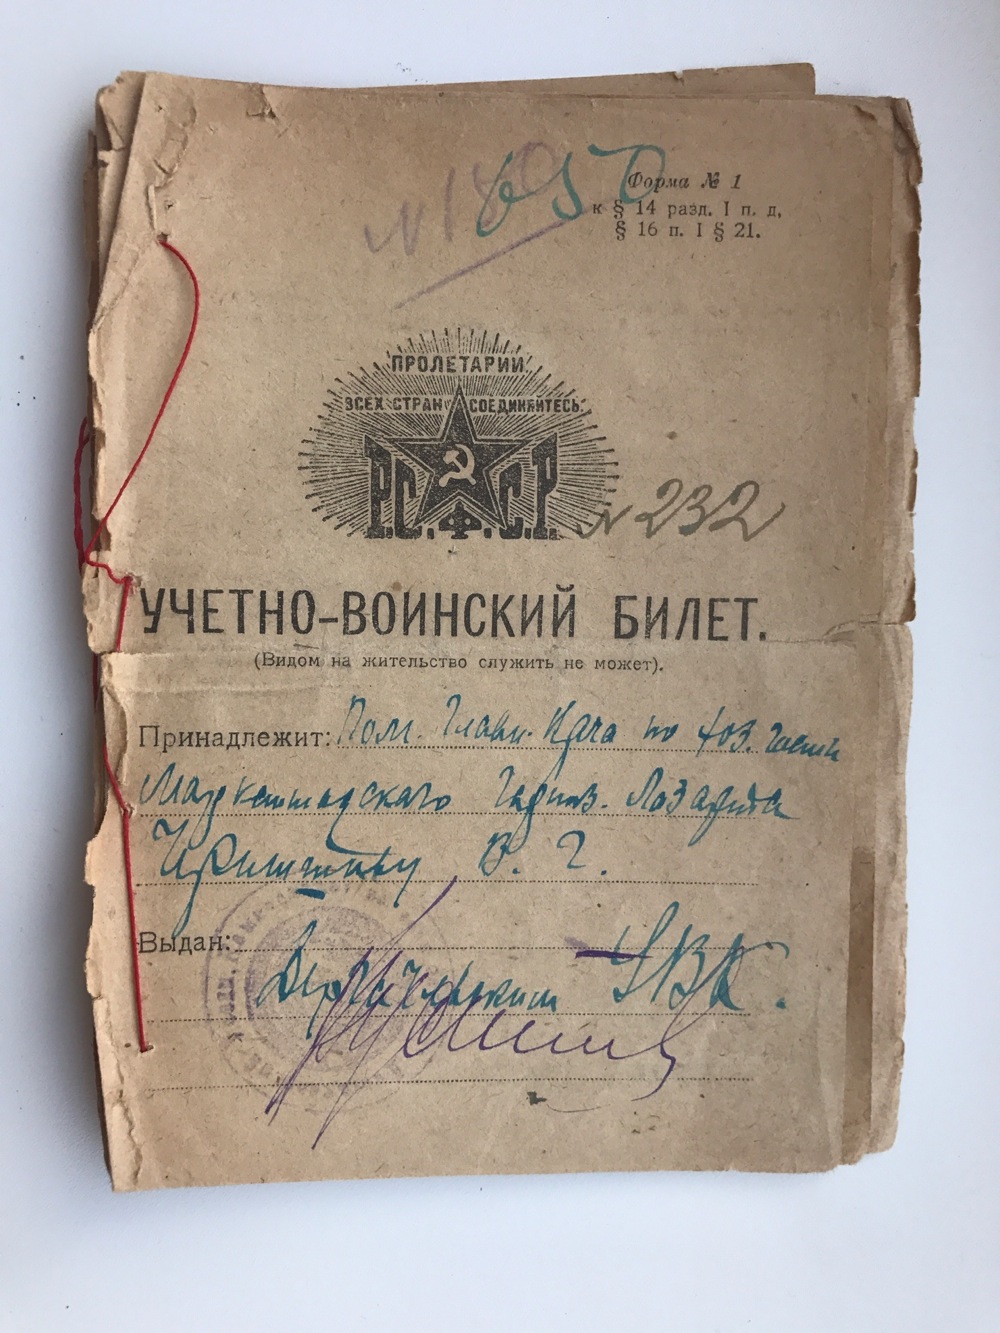 № 180
650
Форма № 1
к § 14 разд. I п. д,
§ 16 п. I § 21.
ПРОЛЕТАРИИ
ВСЕХ СТРАН СОЕДИНЯЙТЕСЬ.
Р.С.Ф.С.Р.
№ 232
УЧЕТНО-ВОИНСКИЙ БИЛЕТ.
(Видом на жительство служить не может).
Принадлежит: Пом. Главн. Врача по хоз. части
Лазарета
В. Г.
Выдан:
УВК.